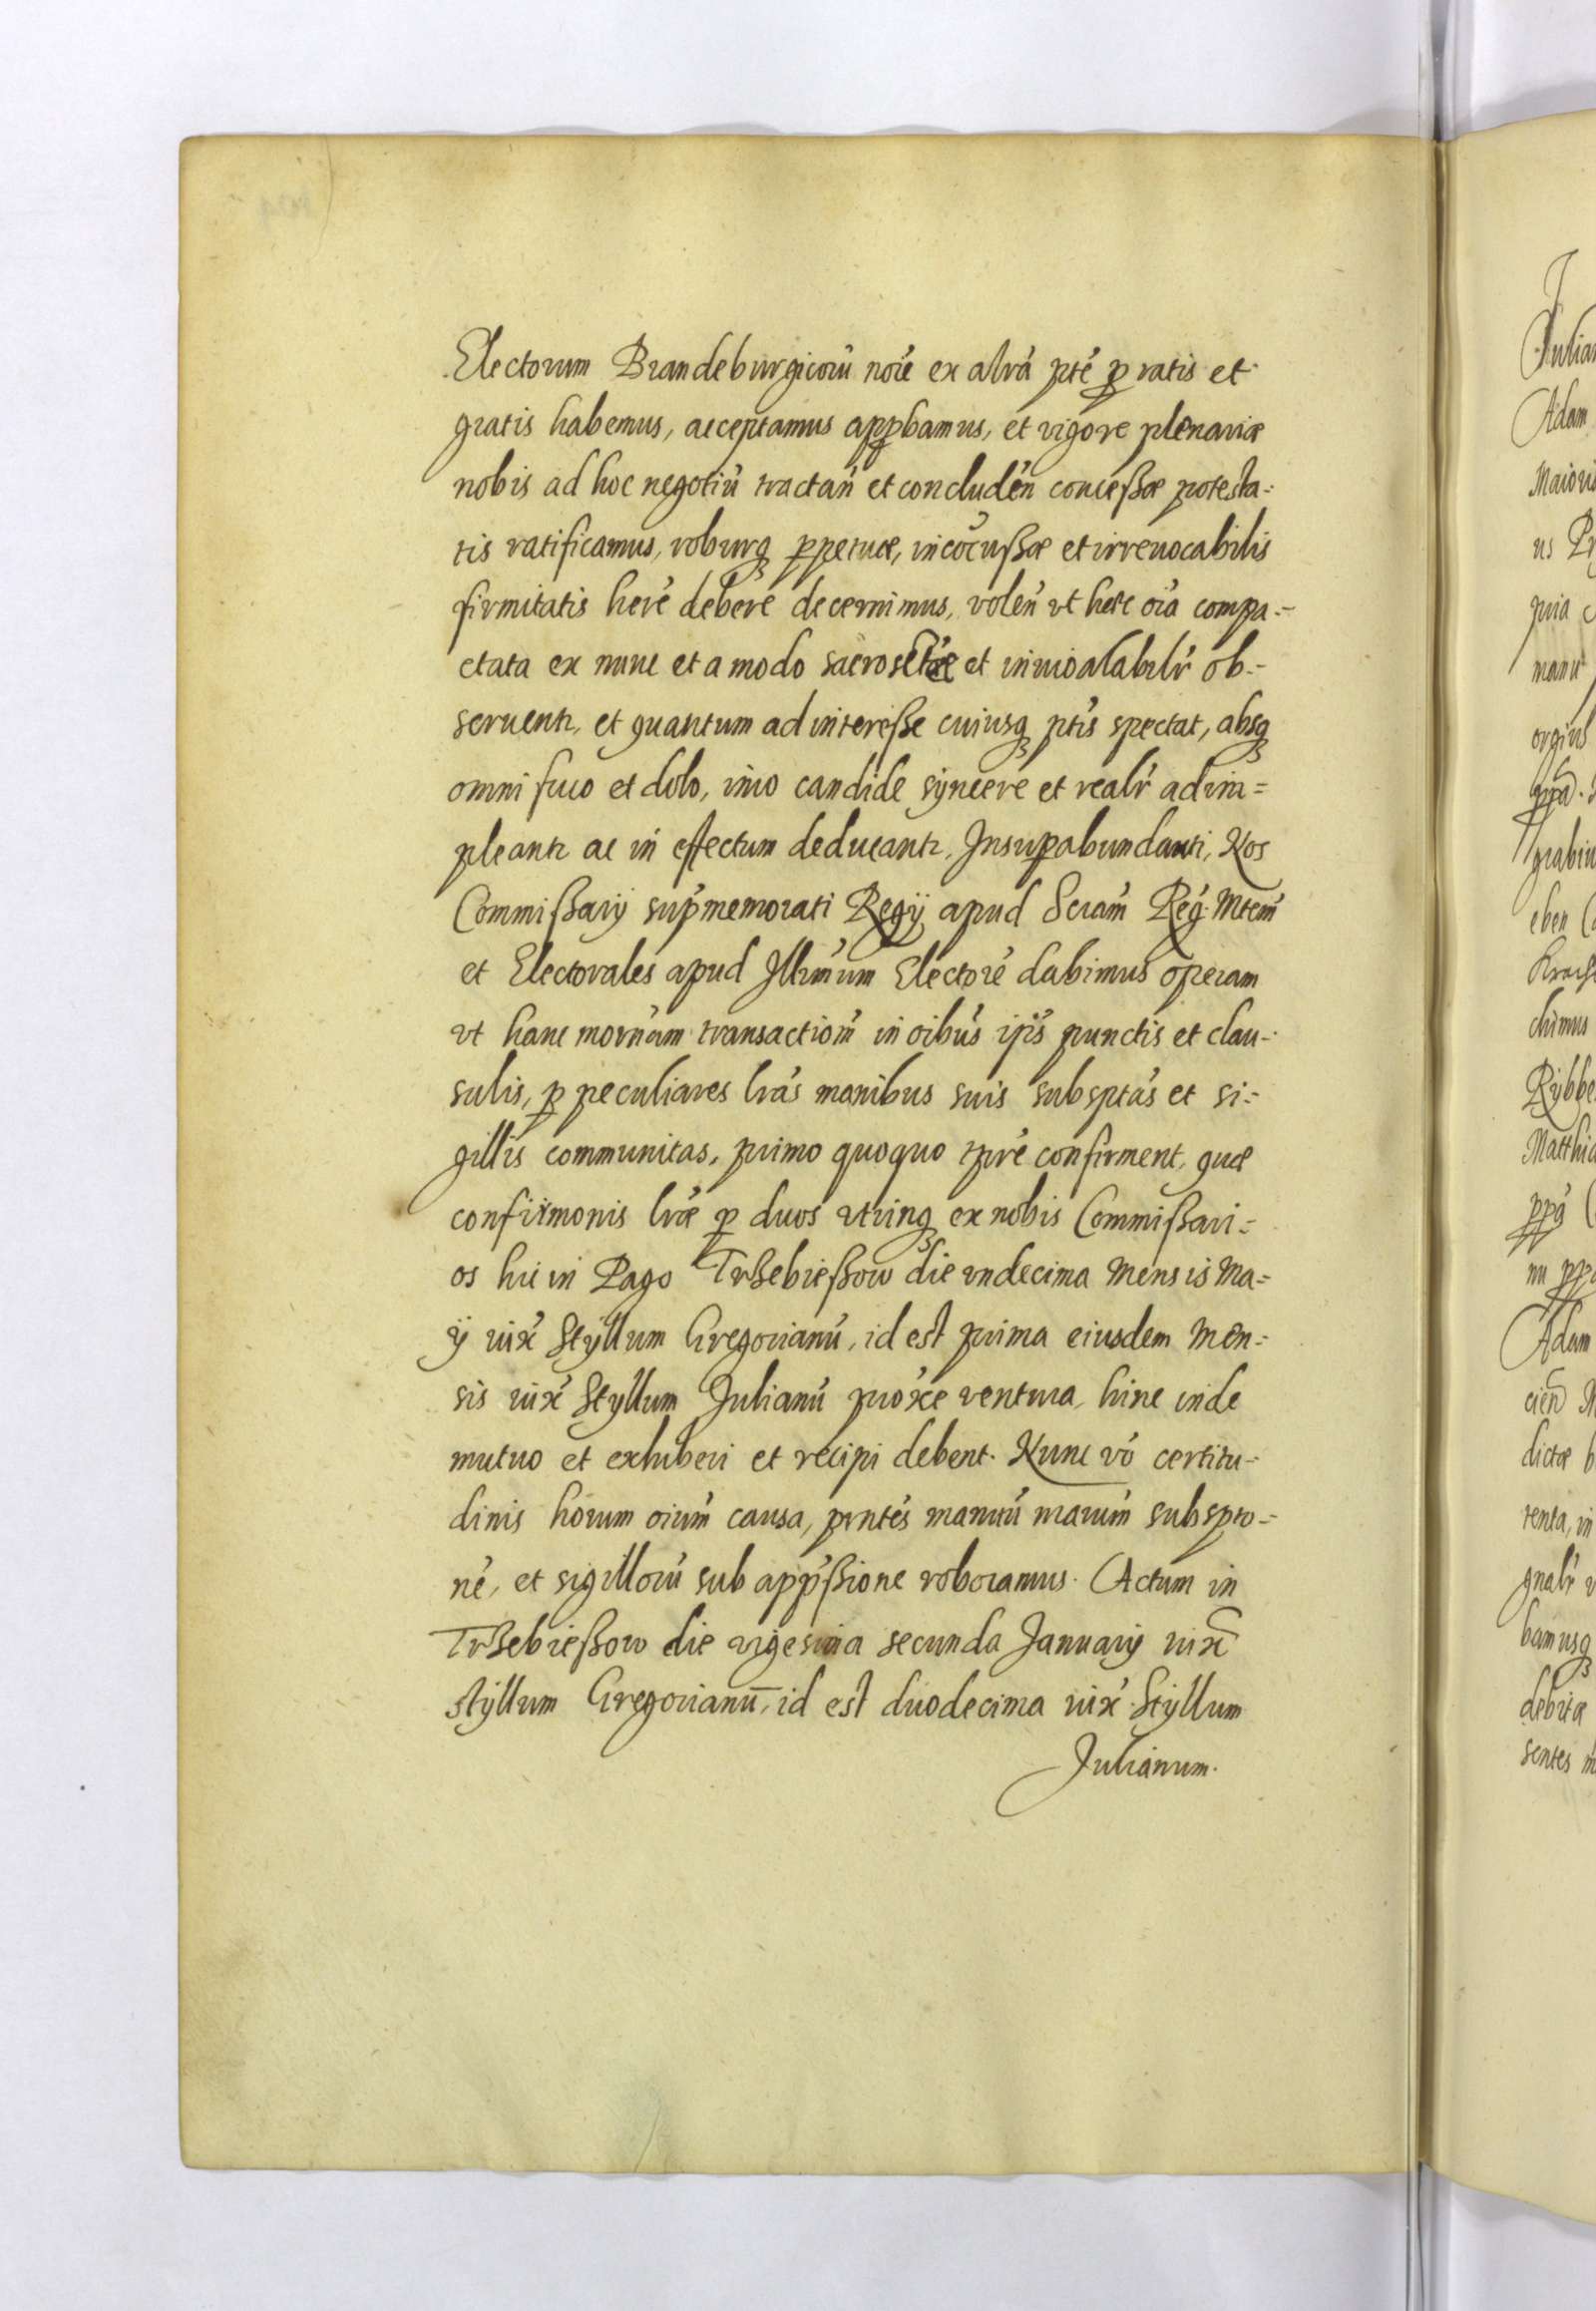 Electorum Brandeburgicorū nōīe ex alrā ptē ꝑ ratis et
gratis habemus, acceptamus apꝓbamus, et vigore plenariæ
nobis ad hoc negotiū tractan̄ et concluden̄ concessæ potesta-
tis ratificamus, roburqꝫ ꝑpetuæ, incōcussæ et irreuocabilis
firmitatis hērē debere decernimus, volen̄ vt hæc oīa compa-
ctata ex nunc et a modo sacrosctæ et inuiolabilr̄ ob-
seruentr, et quantum ad interesse cuiusqꝫ ptīs spectat, absqꝫ
omni fuco et dolo, imo candide syncere et realr̄ adim=
pleantr ac in effectum deducantr, Insuꝑabundanti, Nos
Commissarij sup̄memorati Regij apud Scram̄ Reg. Mtem̄
et Electorales apud Illrmum Electorē dabimus operam
vt hanc mornam transactiom̄ in oībus ip̄is punctis et clau-
sulis, ꝑ peculiares lrās manibus suis subsptās et si=
gillis communitas, primo quoquo tpre confirment, quæ
confirmōnis lræ ꝑ duos vtrinqꝫ ex nobis Commissari=
os hic in Pago Trzebiessow die vndecima Mensis Ma=
ij iux̄ Styllum Gregorianū, id est prima eiusdem Men=
sis iux̄ Styllum Julianū prox̄e ventura, hinc inde
mutuo et exhiberi et recipi debent. Nunc vō certitu-
dinis horum oīum causa, prntēs manuū nrarum̄ subspto-
nē, et sigillorū sub app̄ssione roboramus. Actum in
Trzebiessow die vigesima secunda Januarij iux̄
styllum Gregorianū, id est duodecima iux̄ Styllum
Julianum.